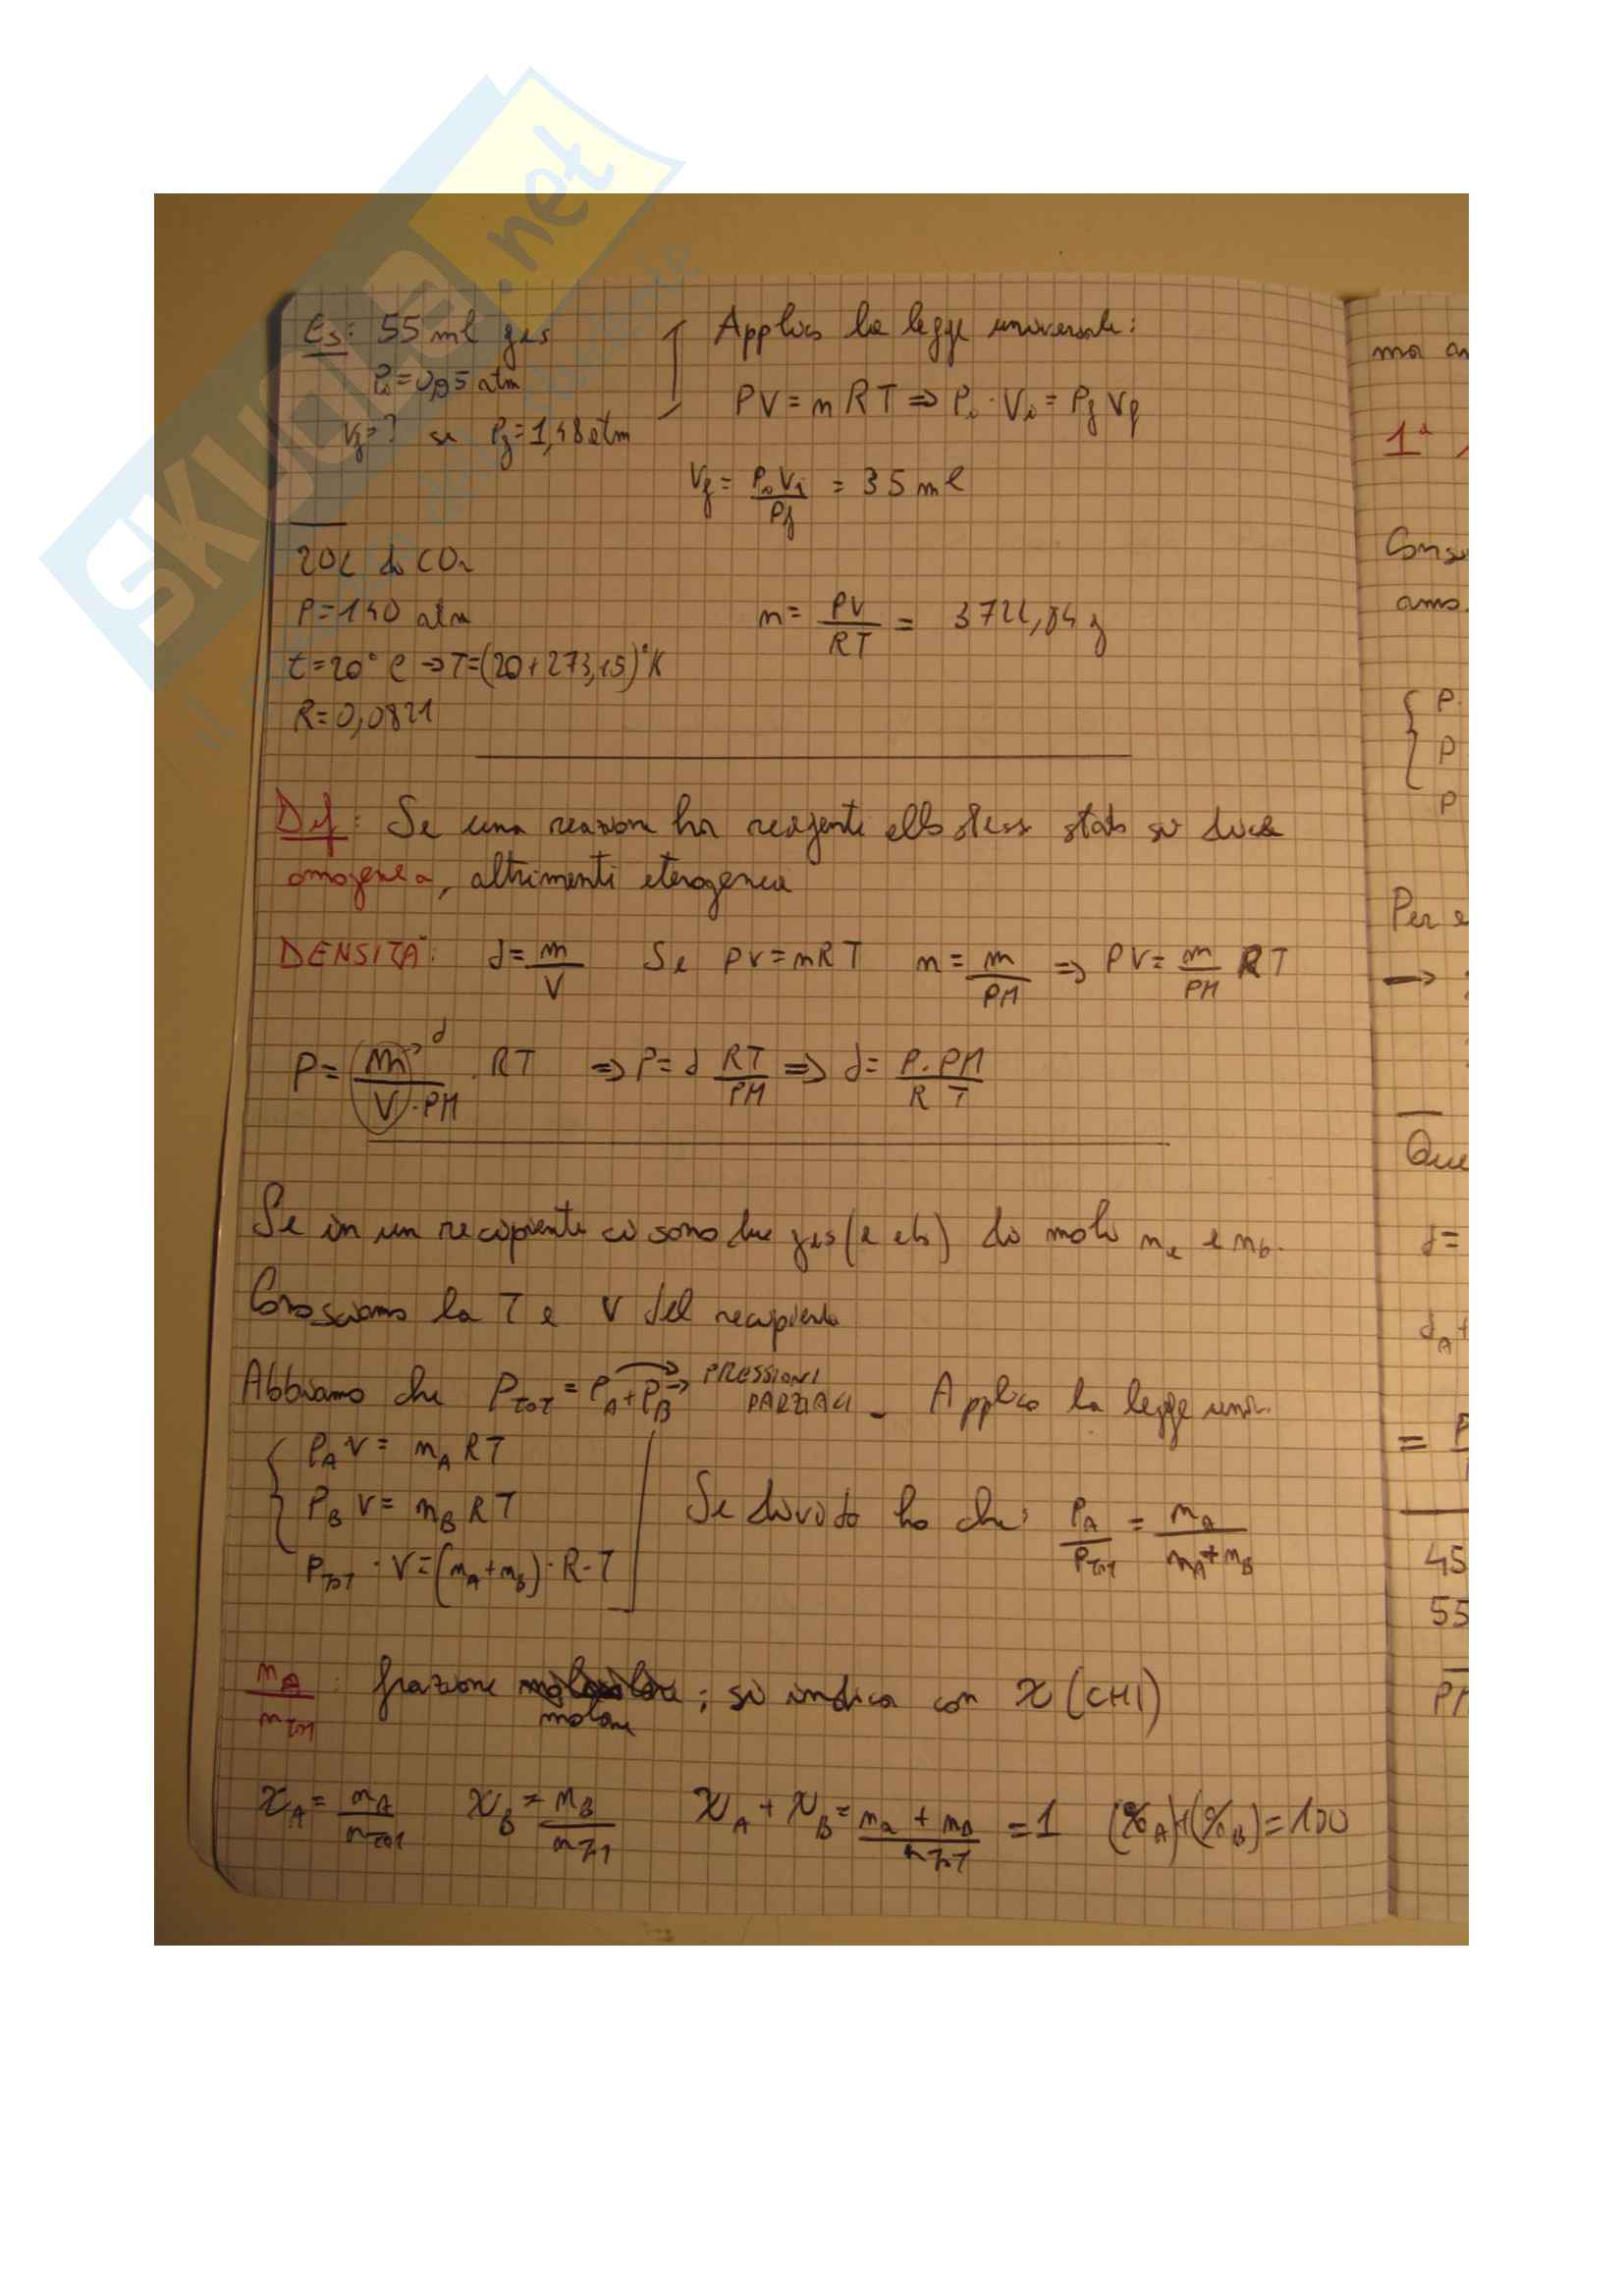 SKUOLA.net
Es: 55 ml gas
Applico la legge universale:
Pi = 0,95 atm
PV = nRT ⇒ Pi · Vi = Pf Vf
Vf = ? se Pf = 1,48 atm
Vf = Pi Vi / Pf = 35 ml
20L di CO2
P = 140 atm
n = PV / RT =
t = 20° C → T = (20 + 273,15)°K
R = 0,0821
Def: Se una reazione ha reagenti allo stesso stato si dice
omogenea, altrimenti eterogenea
DENSITÀ: d = m / V Se PV = nRT n = m / PM ⇒ PV = m / PM RT
P = m / V · PM · RT ⇒ P = d RT / PM ⇒ d = P · PM / R T
d
Se in un recipiente ci sono due gas (a e b) di moli na e nb.
Conosciamo la T e V del recipiente
Abbiamo che PTOT = PA + PB → PRESSIONI PARZIALI _ Applico la legge univ.
PA V = nA RT
PB V = nB RT
Se divido ho che: PA / PTOT = nA / nA + nB
PTOT · V = (nA + nB) · R · T
nA / nTOT : frazione molare ; si indica con χ (CHI)
χA = nA / nTOT χB = nB / nTOT χA + χB = na + nB / nTOT = 1 (%A)+(%B) = 100
ma an
1ª
Cons
amo.
P
P
P
Per e
→
Que
d =
dA +
= P
45
55
PM